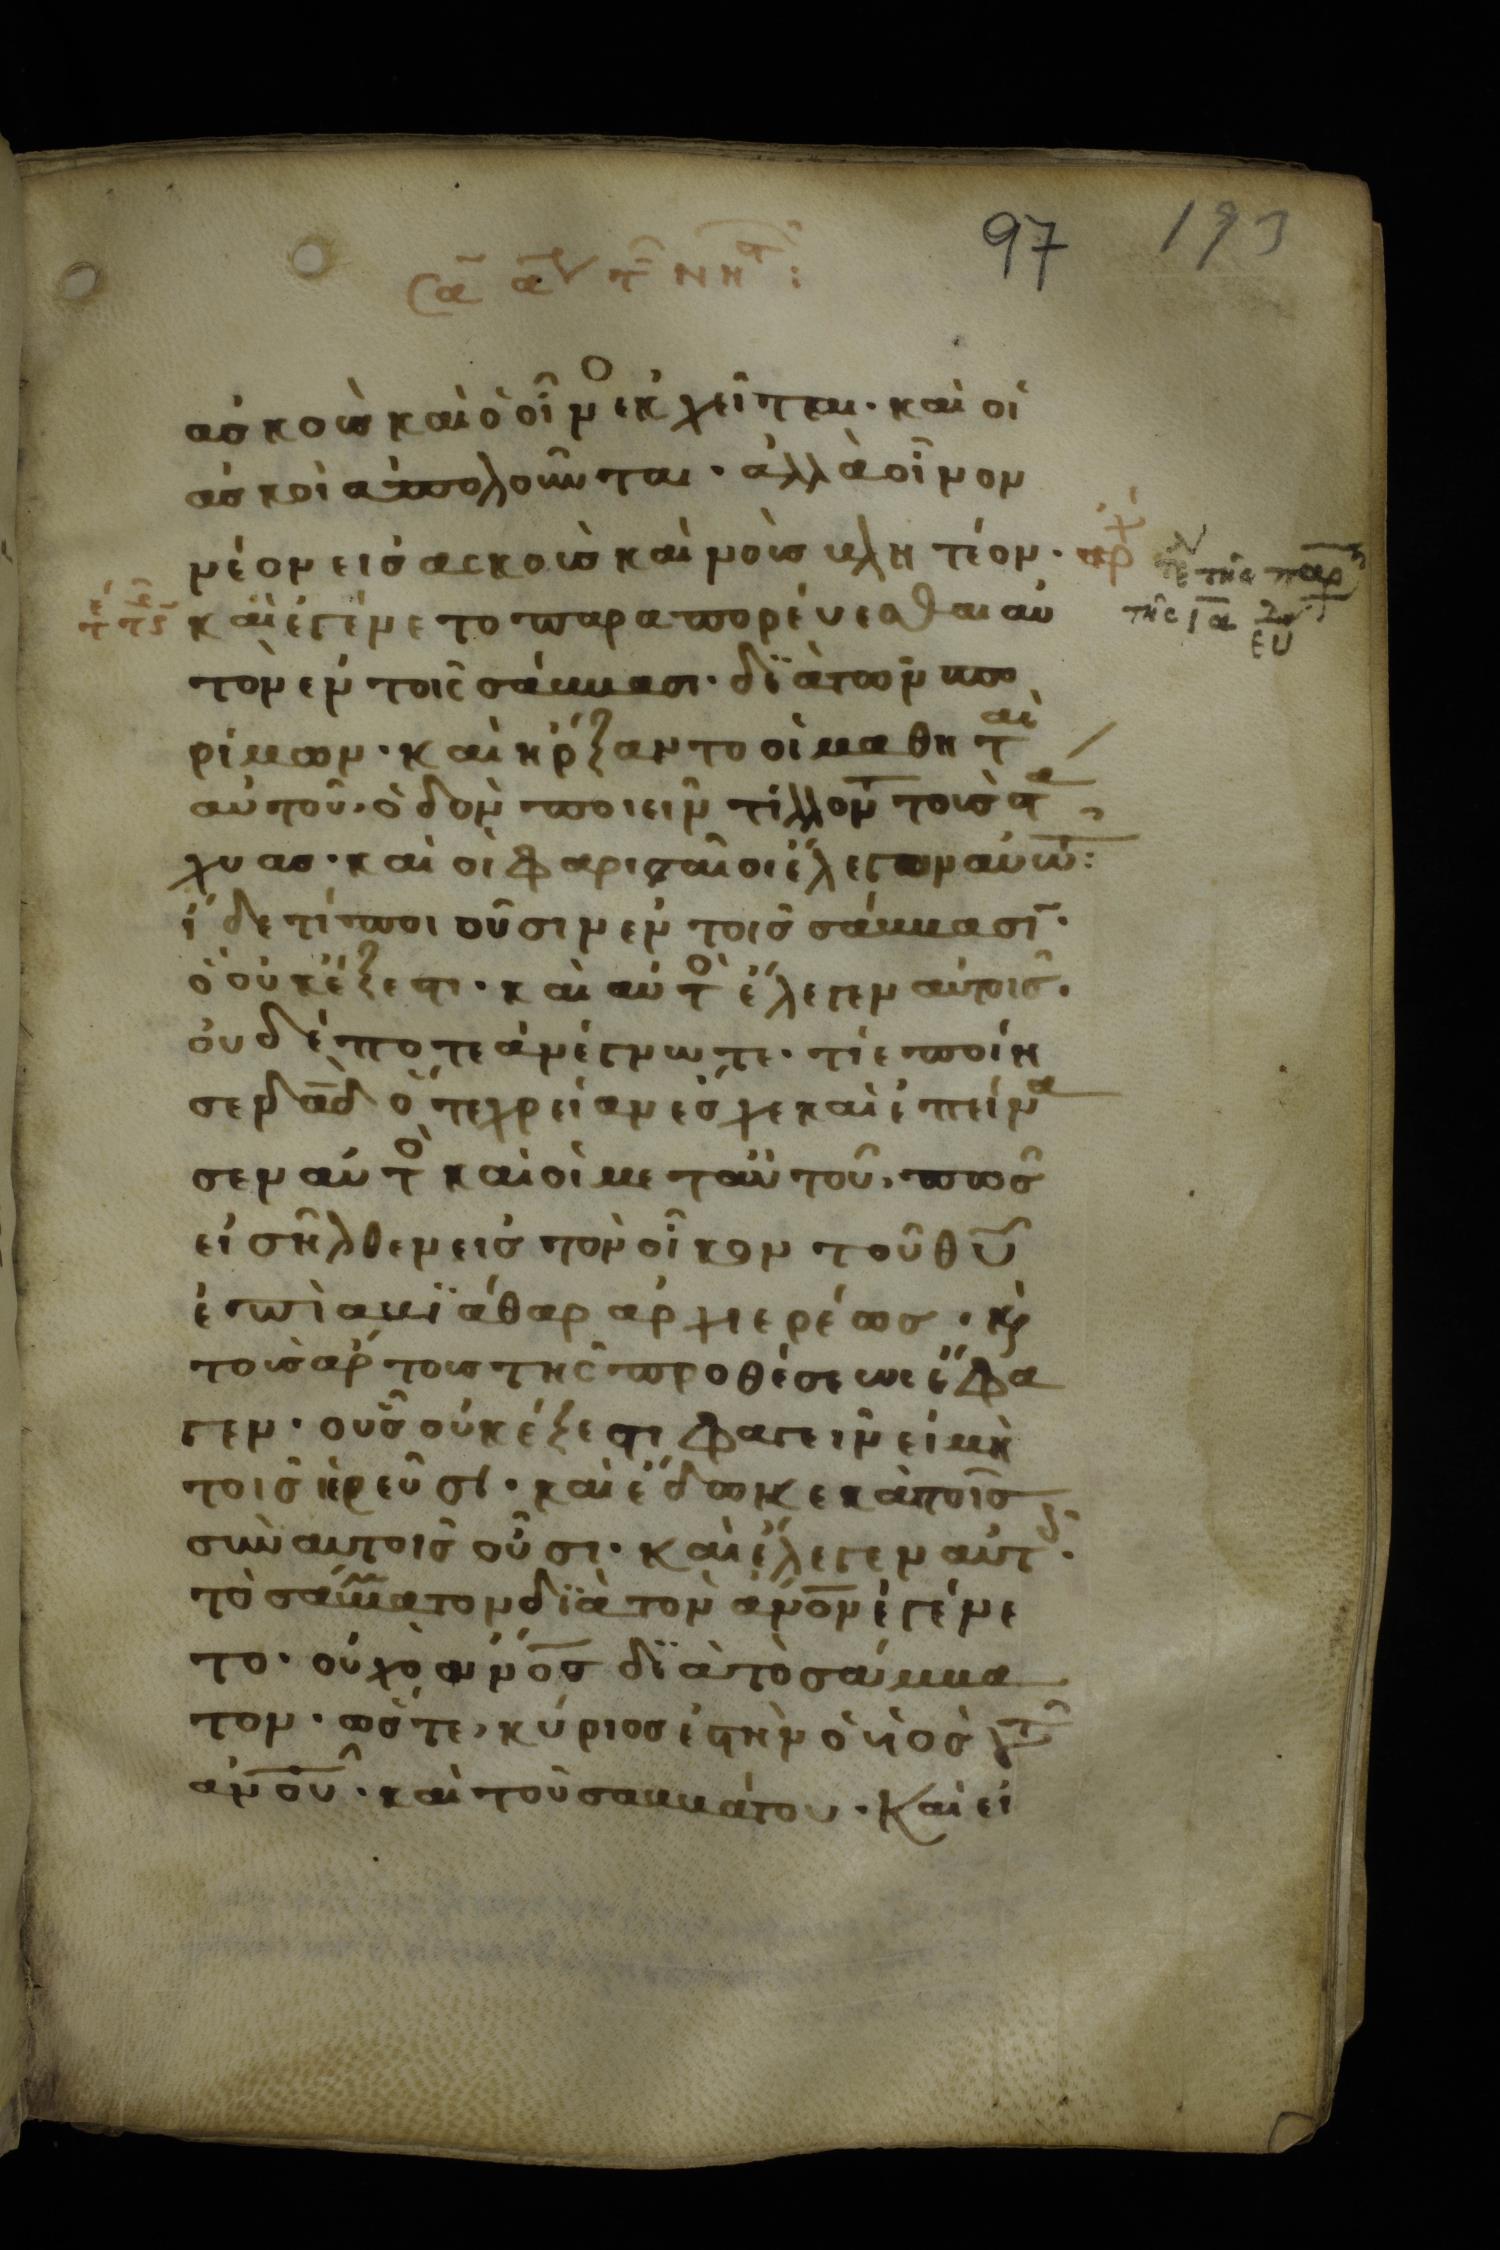 97 193
σα α τ νη :
ασκοὺσ καὶ ὁ οἶνο ἐκχεῖται · καὶ οἱ
ἀσκοὶ ἀπολοῦνται · ἀλλὰ οἶνον
νέον εἰσ ἀσκοὺσ καινοὺσ βλητέον · αρχ
καὶ ἐγένετο παραπορεύεσθαι αὐ
τὸν ἐν τοῖς σάββασι · διὰ τῶν σπο
ρίμων · καὶ ἤρξαντο οἱ μαθηταὶ
αὐτοῦ, ὁδὸν ποιεῖν τίλλοντ τοὺσ στα
χυασ · καὶ οἱ φαρισαῖοι ἔλεγον αὐτῶ :
ἴδε τί ποιοῦσιν ἐν τοῖσ σάββασι ·
ὃ οὐκ ἔξεστι · καὶ αὐτὸ ἔλεγεν αὐτοῖσ ·
οὐδέποτε ἀνέγνωτε · τί ἐποίη
σεν δαδ ὅτε χρείαν ἔσχε καὶ ἐπείνα
σεν αὐτὸ καὶ οἱ μετ αὐτοῦ, πῶσ
εἰσῆλθεν εἰσ τὸν οἶκον τοῦ θυ
ἐπὶ ἀβιάθαρ ἀρχιερέωσ · κ
τοὺσ ἄρτουσ τῆς προθέσεως ἔφα
γεν · οὓσ οὐκ ἔξεστι φαγεῖν εἰ μὴ
τοῖσ ἱερεῦσι · καὶ ἔδωκε κ τοῖσ
σὺν αὐτοῖσ οὖσι · καὶ ἔλεγεν αὐτ ·
τὸ σάββατον διὰ τὸν ἄνον ἐγένε
το · οὐχ ὁ ἄνοσ διὰ τὸ σάββα
τον · ὥστε, κύριοσ ἐστὴν ὁ ὑὸσ τ
ἀνου · καὶ τοῦ σαββάτου · Καὶ εἰ